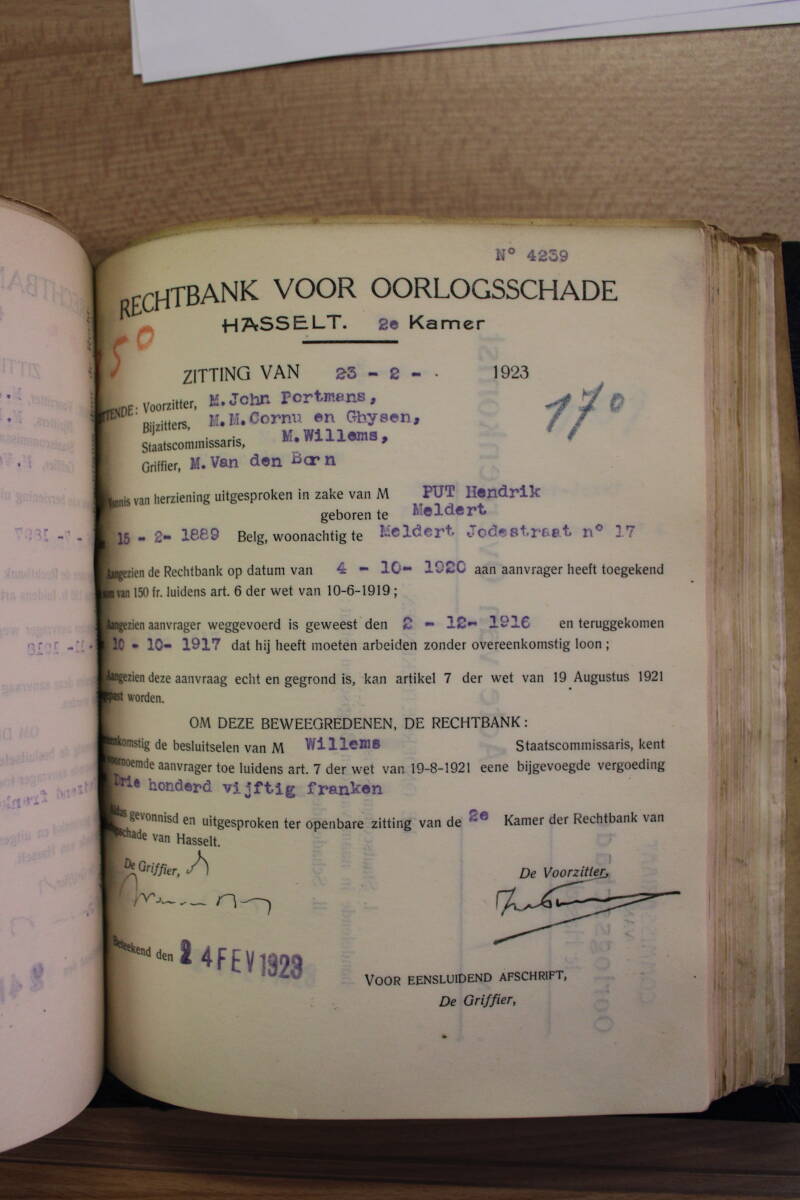 Nº 4239
RECHTBANK VOOR OORLOGSSCHADE
HASSELT. 2e Kamer
50
ZITTING VAN 23 - 2 - . 1923
170
TENDE: Voorzitter, M.John Portmans,
Bijzitters, M.M.Cornu en Ghysen,
Staatscommissaris, M.Willems,
Griffier, M.Van den Born
nnis van herziening uitgesproken in zake van M PUT Hendrik
geboren te Meldert
15 - 2- 1889 Belg, woonachtig te Meldert Jodestraat nº 17
Aangezien de Rechtbank op datum van 4 - 10- 1920 aan aanvrager heeft toegekend
van 150 fr. luidens art. 6 der wet van 10-6-1919;
Aangezien aanvrager weggevoerd is geweest den 2 - 12- 1916 en teruggekomen
10 - 10- 1917 dat hij heeft moeten arbeiden zonder overeenkomstig loon;
Aangezien deze aanvraag echt en gegrond is, kan artikel 7 der wet van 19 Augustus 1921
past worden.
OM DEZE BEWEEGREDENEN, DE RECHTBANK:
enkomstig de besluitselen van M Willems Staatscommissaris, kent
voornoemde aanvrager toe luidens art. 7 der wet van 19-8-1921 eene bijgevoegde vergoeding
Drie honderd vijftig franken
Aldus gevonnisd en uitgesproken ter openbare zitting van de 2e Kamer der Rechtbank van
schade van Hasselt.
De Griffier,
De Voorzitter,
Beteekend den 24 FEV 1923
VOOR EENSLUIDEND AFSCHRIFT,
De Griffier,